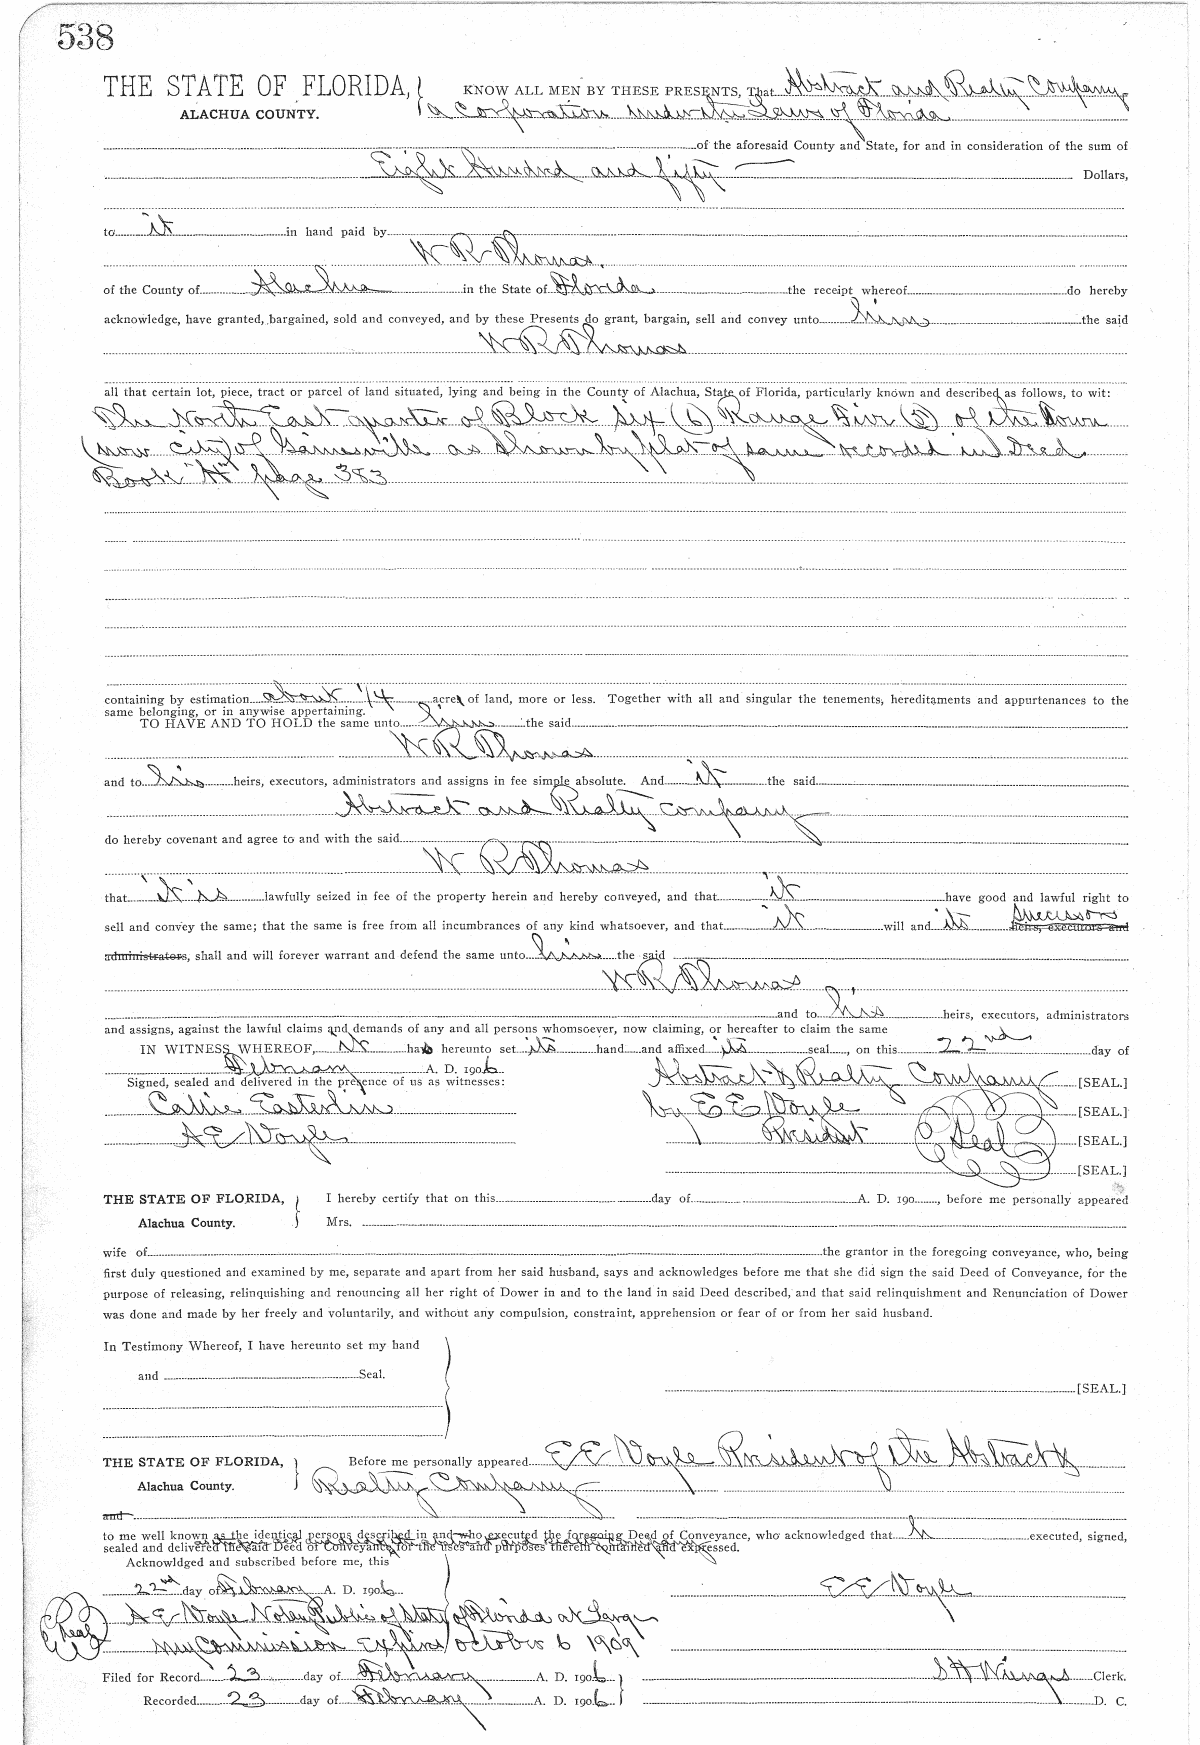 538
THE STATE OF FLORIDA, KNOW ALL MEN BY THESE PRESENTS, That Abstract and Realty Company
ALACHUA COUNTY. a Corporation under the Laws of Florida
of the aforesaid County and State, for and in consideration of the sum of
Eight Hundred and fifty Dollars,
to it in hand paid by
W R Thomas.
of the County of Alachua in the State of Florida the receipt whereof do hereby
acknowledge, have granted, bargained, sold and conveyed, and by these Presents do grant, bargain, sell and convey unto him the said
W R Thomas
all that certain lot, piece, tract or parcel of land situated, lying and being in the County of Alachua, State of Florida, particularly known and described as follows, to wit:
The North East quarter of Block Six (6) Range Five (5) of the Town
(now city) of Gainesville as shown by plat of same recorded in Deed
Book "A" page 383
containing by estimation about 1/4 acre of land, more or less. Together with all and singular the tenements, hereditaments and appurtenances to the
same belonging, or in anywise appertaining.
TO HAVE AND TO HOLD the same unto him the said
W R Thomas
and to his heirs, executors, administrators and assigns in fee simple absolute. And it the said
Abstract and Realty Company
do hereby covenant and agree to and with the said
W R Thomas
that it is lawfully seized in fee of the property herein and hereby conveyed, and that it have good and lawful right to
sell and convey the same; that the same is free from all incumbrances of any kind whatsoever, and that it will and its successors heirs, executors and
administrators, shall and will forever warrant and defend the same unto him the said
W R Thomas
and to his heirs, executors, administrators
and assigns, against the lawful claims and demands of any and all persons whomsoever, now claiming, or hereafter to claim the same
IN WITNESS WHEREOF, it has hereunto set its hand and affixed its seal, on this 22nd day of
February A. D. 1906
Signed, sealed and delivered in the presence of us as witnesses: Abstract & Realty Company [SEAL.]
Callie Easterlin by E E Voyle [SEAL.]
A E Voyle President Seal [SEAL.]
[SEAL.]
THE STATE OF FLORIDA, I hereby certify that on this day of A. D. 190 , before me personally appeared
Alachua County. Mrs.
wife of the grantor in the foregoing conveyance, who, being
first duly questioned and examined by me, separate and apart from her said husband, says and acknowledges before me that she did sign the said Deed of Conveyance, for the
purpose of releasing, relinquishing and renouncing all her right of Dower in and to the land in said Deed described, and that said relinquishment and Renunciation of Dower
was done and made by her freely and voluntarily, and without any compulsion, constraint, apprehension or fear of or from her said husband.
In Testimony Whereof, I have hereunto set my hand
and Seal.
[SEAL.]
THE STATE OF FLORIDA, Before me personally appeared E E Voyle President of the Abstract &
Alachua County. Realty Company
and
to me well known as the identical persons described in and who executed the foregoing Deed of Conveyance, who acknowledged that he executed, signed,
sealed and delivered the said Deed of Conveyance, for the uses and purposes therein contained and expressed.
Acknowldged and subscribed before me, this
22nd day of February A. D. 1906 E E Voyle
A E Voyle Notary Public of State of Florida at Large
Seal My Commission Expires October 6 1909
Filed for Record 23 day of February A. D. 1906 Clerk.
Recorded 23 day of February A. D. 1906 D. C.